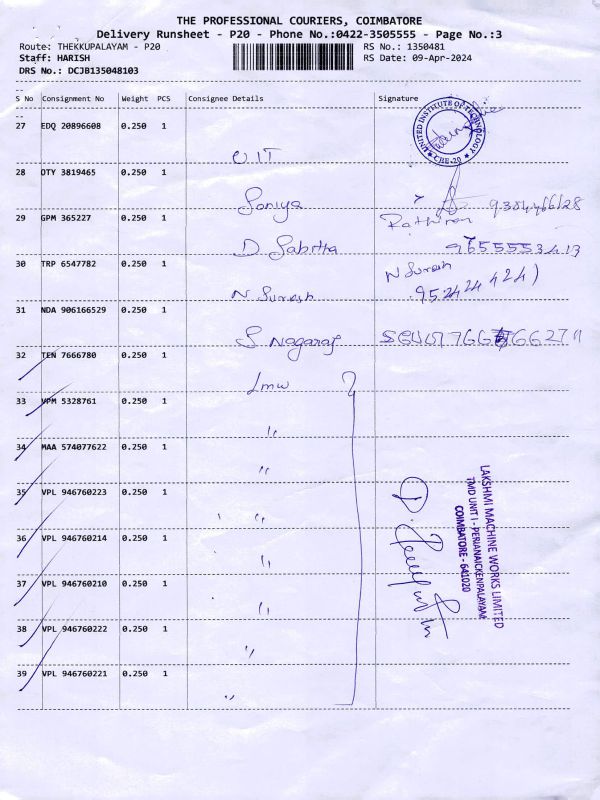 THE PROFESSIONAL COURIERS, COIMBATORE
Delivery Runsheet - P20 - Phone No.:0422-3505555 - Page No.:3
Route: THEKKUPALAYAM - P20 RS No.: 1350481
Staff: HARISH RS Date: 09-Apr-2024
DRS No.: DCJB135048103
--
S No Consignment No Weight PCS Consignee Details Signature
--
27 EDQ 20896608 0.250 1
UNITED INSTITUTE OF TECHNOLOGY
* CBE-20 *
UIT
28 OTY 3819465 0.250 1
Soniya
29 GPM 365227 0.250 1
D Sabitha 9655553413
30 TRP 6547782 0.250 1
N Suresh
N Suresh
31 NDA 906166529 0.250 1
S Nagaraj
32 TEN 7666780 0.250 1
Lmw
33 VPM 5328761 0.250 1
"
34 MAA 574077622 0.250 1
"
35 VPL 946760223 0.250 1
"
36 VPL 946760214 0.250 1
"
37 VPL 946760210 0.250 1
"
38 VPL 946760222 0.250 1
"
39 VPL 946760221 0.250 1
"
LAKSHMI MACHINE WORKS LIMITED
TMD UNIT I - PERIANAICKENPALAYAM
COIMBATORE - 641020